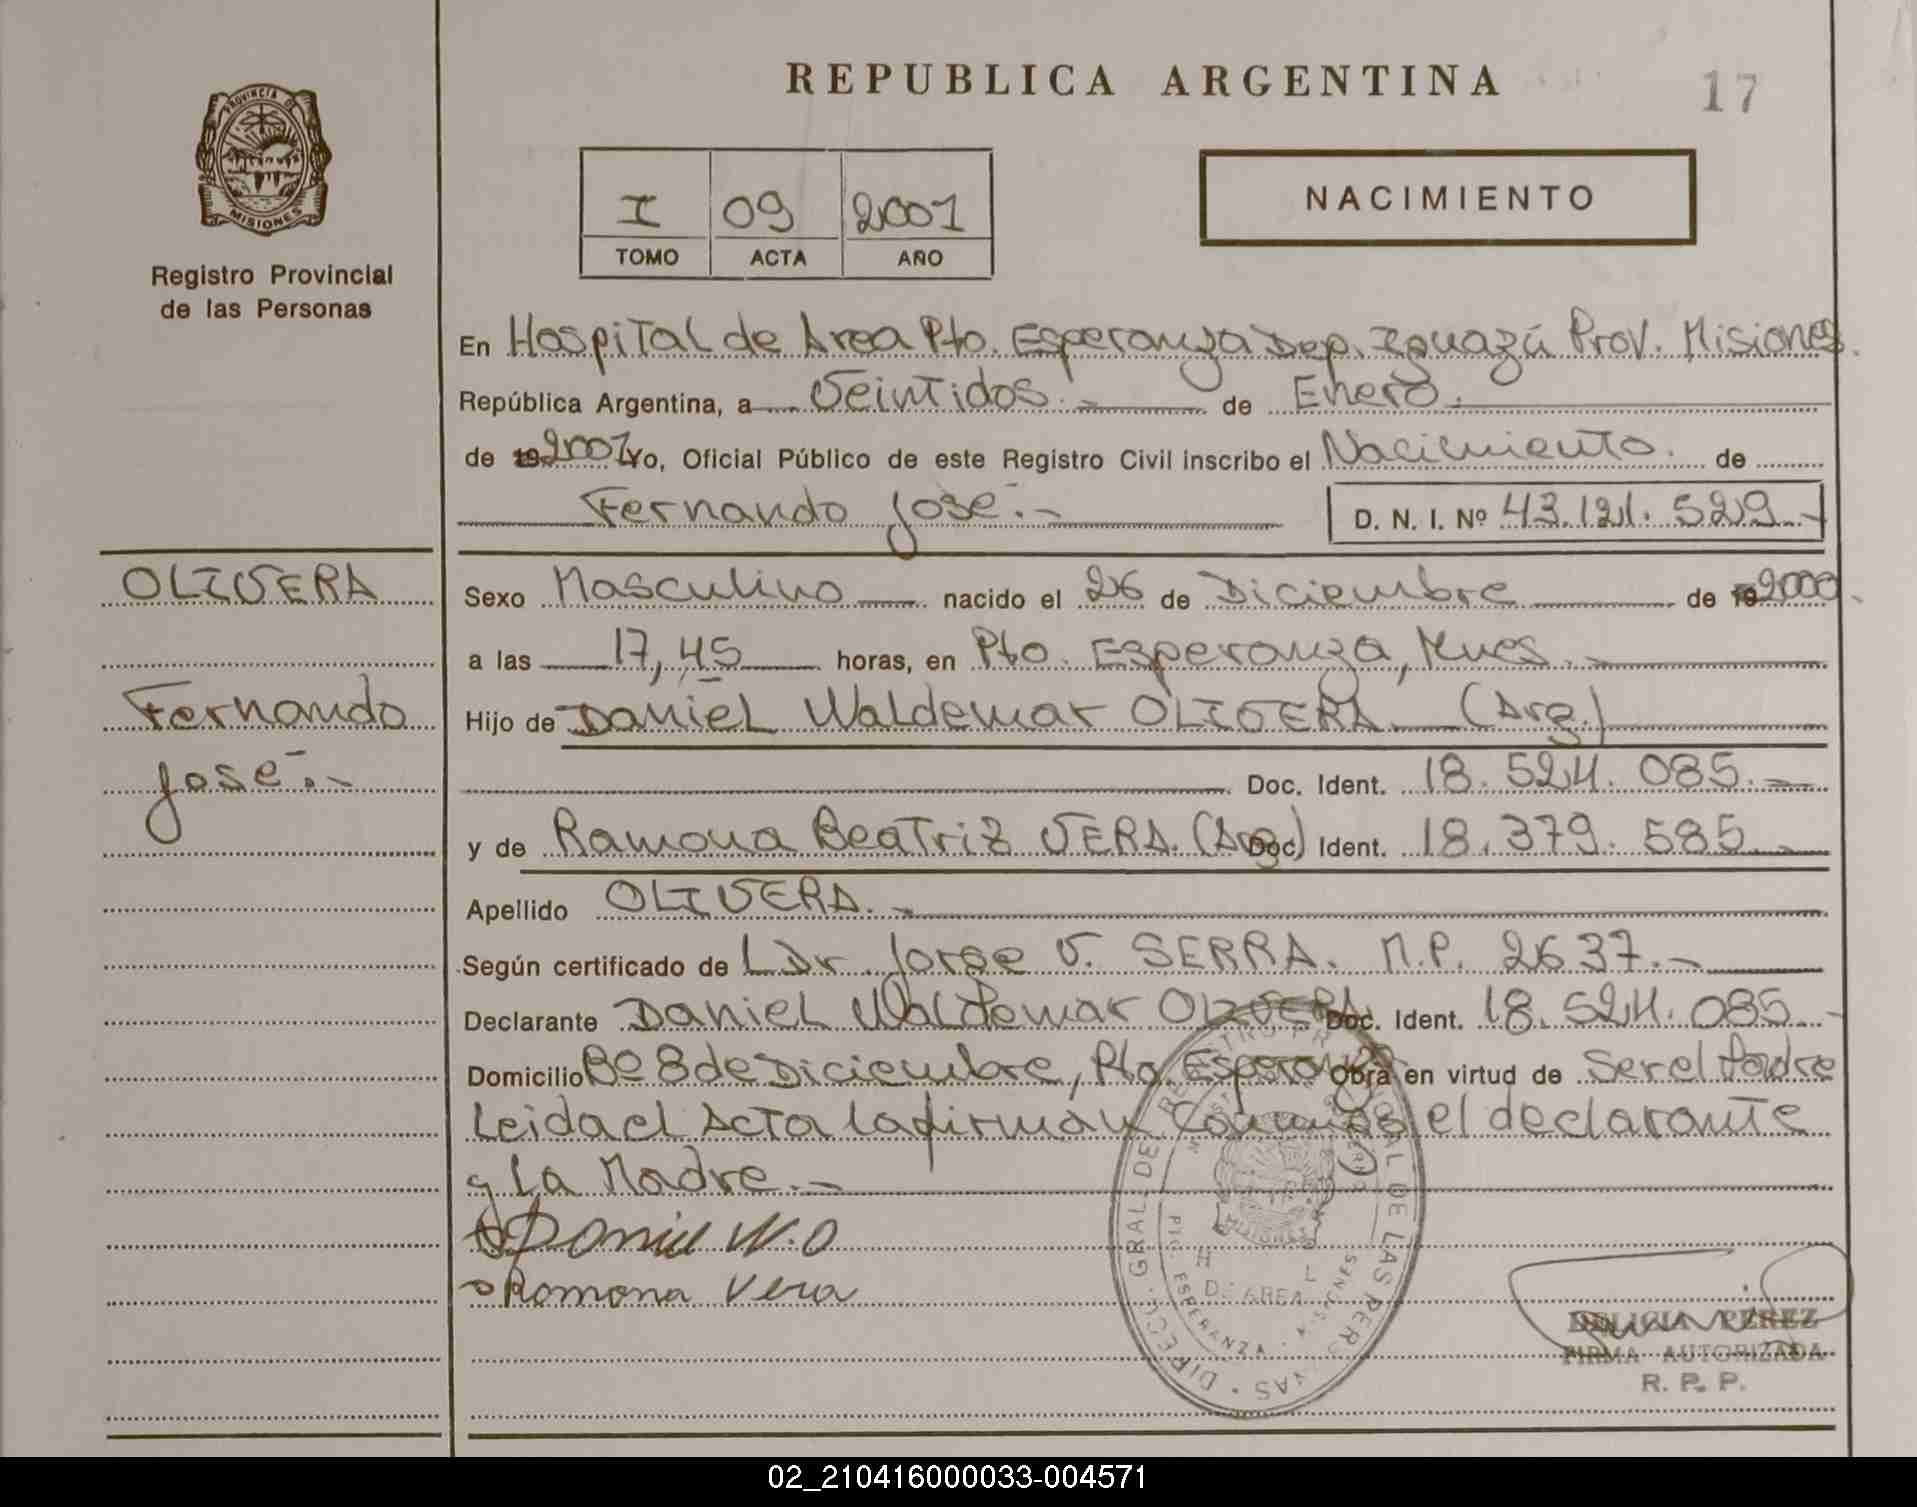 REPUBLICA ARGENTINA
17
PROVINCIA DE
MISIONES
Registro Provincial
de las Personas
I 09 2001
TOMO ACTA AÑO
NACIMIENTO
En Hospital de Area Pto. Esperanza Dep. Iguazú Prov. Misiones.
República Argentina, a Veintidos.- de Enero.
de 19 2001 Yo, Oficial Público de este Registro Civil inscribo el Nacimiento. de
Fernando José.- D. N. I. Nº 43.121.529.-
OLIVERA
Sexo Masculino nacido el 26 de Diciembre de 19 2000.
a las 17,45 horas, en Pto. Esperanza, Mnes.-
Fernando
Hijo de Daniel Waldemar OLIVERA (Arg.)
José.-
Doc. Ident. 18.524.085.-
y de Ramona Beatriz VERA. (Arg) Doc. Ident. 18.379.585.-
Apellido OLIVERA.-
Según certificado de L Dr. Jorge V. SERRA. M.P. 2637.-
Declarante Daniel Waldemar OLIVERA Doc. Ident. 18.524.085.-
Domicilio Bº 8 de Diciembre, Pto. Esperanza Obra en virtud de Ser el Padre
Leida el Acta la firman Conmigo el declarante
y La Madre.-
Daniel W.O
Ramona Vera
DIREC. GRAL DE REGISTRO PROVINCIAL DE LAS PERSONAS
MISIONES
DE AREA
ESPERANZA - MISIONES
DELICIA PEREZ
FIRMA AUTORIZADA
R. P. P.
02_210416000033-004571